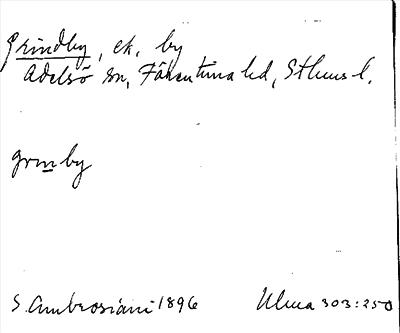 Grindby, ek. by
Adelsö sn, Färentuna hd, Sthms l.
grinby
S. Ambrosiani 1896 Ulma 303:250